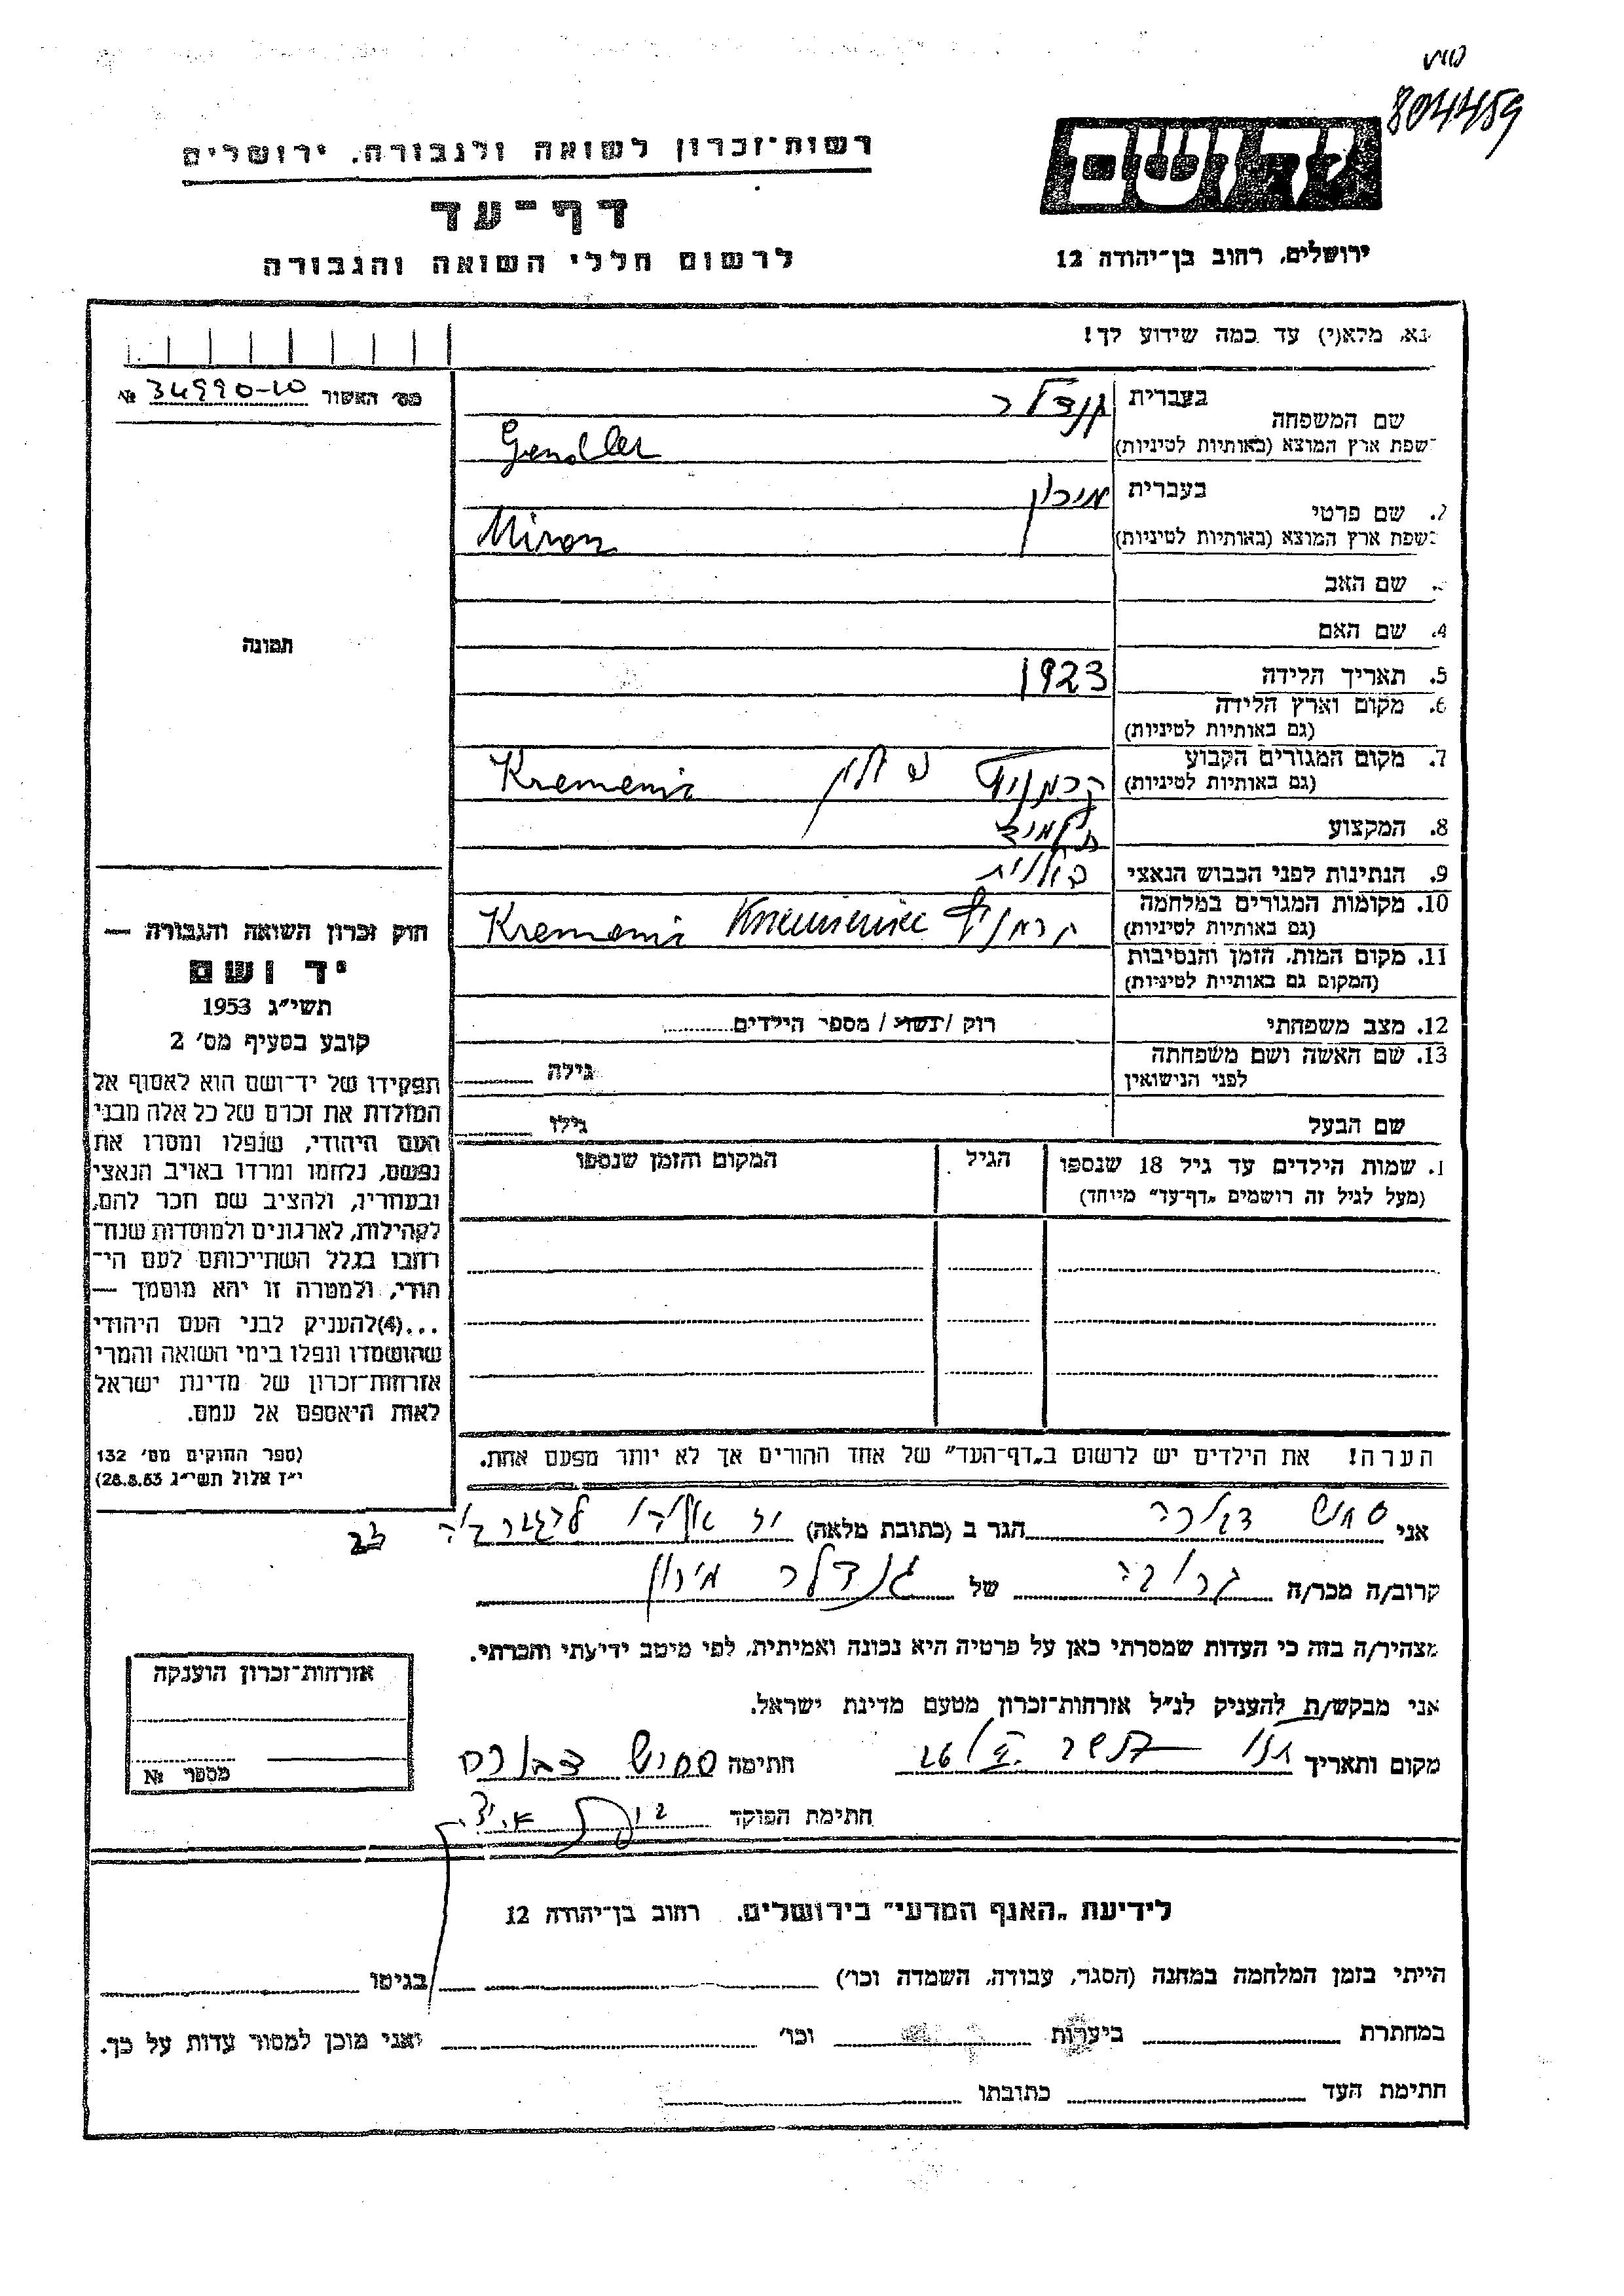 804459
רשות־זכרון לשואה ולגבורה, ירושלים
דף־עד
לרשום חללי השואה והגבורה
ירושלים, רחוב בן־יהודה 12
נא, מלא(י) עד כמה שידוע לך!
מס׳ האשור 34990-10 №
שם המשפחה בעברית גנדלר
בשפת ארץ המוצא (באותיות לטיניות) Gendler
2. שם פרטי בעברית מירון
בשפת ארץ המוצא (באותיות לטיניות) Miron
שם האב
4. שם האם
תמונה
5. תאריך הלידה 1923
6. מקום וארץ הלידה
(גם באותיות לטיניות)
7. מקום המגורים הקבוע קרמניץ פולין Kremenis
(גם באותיות לטיניות)
8. המקצוע תלמיד
9. הנתינות לפני הכבוש הנאצי פולנית
10. מקומות המגורים במלחמה קרמניץ Kremeniec Kremenis
(גם באותיות לטיניות)
11. מקום המות, הזמן והנסיבות
(המקום גם באותיית לטיניות)
12. מצב משפחתי רוק / נשוי / מספר הילדים
13. שם האשה ושם משפחתה גילה
לפני הנישואין
שם הבעל גילו
חוק זכרון השואה והגבורה —
יד ושם
תשי״ג 1953
קובע בסעיף מס׳ 2
תפקידו של יד־ושם הוא לאסוף אל
המולדת את זכרם של כל אלה מבני
העם היהודי, שנפלו ומסרו את
נפשם, נלחמו ומרדו באויב הנאצי
ובעוזריו, ולהציב שם וזכר להם,
לקהילות, לארגונים ולמוסדות שנח־
רבו בגלל השתייכותם לעם הי־
הודי, ולמטרה זו יהא מוסמך —
...(4)להעניק לבני העם היהודי
שהושמדו ונפלו בימי השואה והמרי
אזרחות־זכרון של מדינת ישראל
לאות היאספם אל עמם.
(ספר החוקים מס׳ 132
י״ז אלול תשי״ג 28.8.53)
שמות הילדים עד גיל 18 שנספו הגיל המקום והזמן שנספו
(מעל לגיל זה רושמים „דף־עד״ מיוחד)
הערה! את הילדים יש לרשום ב„דף־העד״ של אחד ההורים אך לא יותר מפעם אחת.
אני דבורה הגר ב (כתובת מלאה) יד 23
קרוב/ה מכר/ה קרובה של גנדלר מירון
מצהיר/ה בזה כי העדות שמסרתי כאן על פרטיה היא נכונה ואמיתית, לפי מיטב ידיעתי והכרתי.
אני מבקש/ת להעניק לנ״ל אזרחות־זכרון מטעם מדינת ישראל.
מקום ותאריך חתימה דבורה
חתימת הפוקד
אזרחות־זכרון הוענקה
מספרי №
לידיעת „האגף המדעי״ בירושלים, רחוב בן־יהודה 12
הייתי בזמן המלחמה במחנה (הסגר, עבודה, השמדה וכו׳) בגיטו
במחתרת ביערות וכו׳ ואני מוכן למסור עדות על כך.
חתימת העד כתובתו